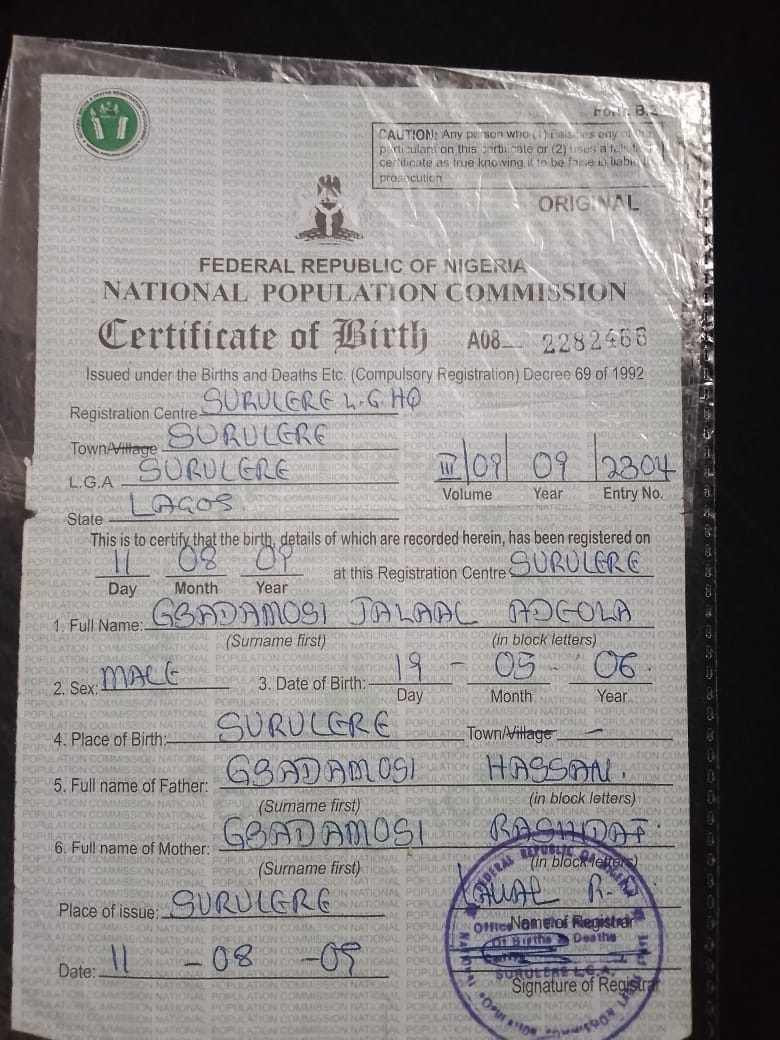 Form B.
CAUTION: Any person who (1) Falsifies any of the
particulars on this certificate or (2) uses a
certificate as true knowing it to be false is liable
prosecution
ORIGINAL
FEDERAL REPUBLIC OF NIGERIA
NATIONAL POPULATION COMMISSION
Certificate of Birth A08 2282466
Issued under the Births and Deaths Etc. (Compulsory Registration) Decree 69 of 1992
Registration Centre SURULERE L.G HQ
Town/Village SURULERE
L.G.A SURULERE III/09 09 2304
Volume Year Entry No.
State LAGOS
This is to certify that the birth, details of which are recorded herein, has been registered on
11 08 09 at this Registration Centre SURULERE
Day Month Year
1. Full Name: GBADAMOSI JALAAL ADEOLA
(Surname first) (in block letters)
2. Sex: MALE 3. Date of Birth: 19 - 05 - 06.
Day Month Year
4. Place of Birth: SURULERE Town/Village —
5. Full name of Father: GBADAMOSI HASSAN.
(Surname first) (in block letters)
6. Full name of Mother: GBADAMOSI RASHIDAT
(Surname first) (in block letters)
Place of issue: SURULERE LAWAL R.
Name of Registrar
Date: 11 - 08 - 09
Signature of Registrar
FEDERAL REPUBLIC OF NIGERIA
Office
Of Births & Deaths
SURULERE L.G.A.